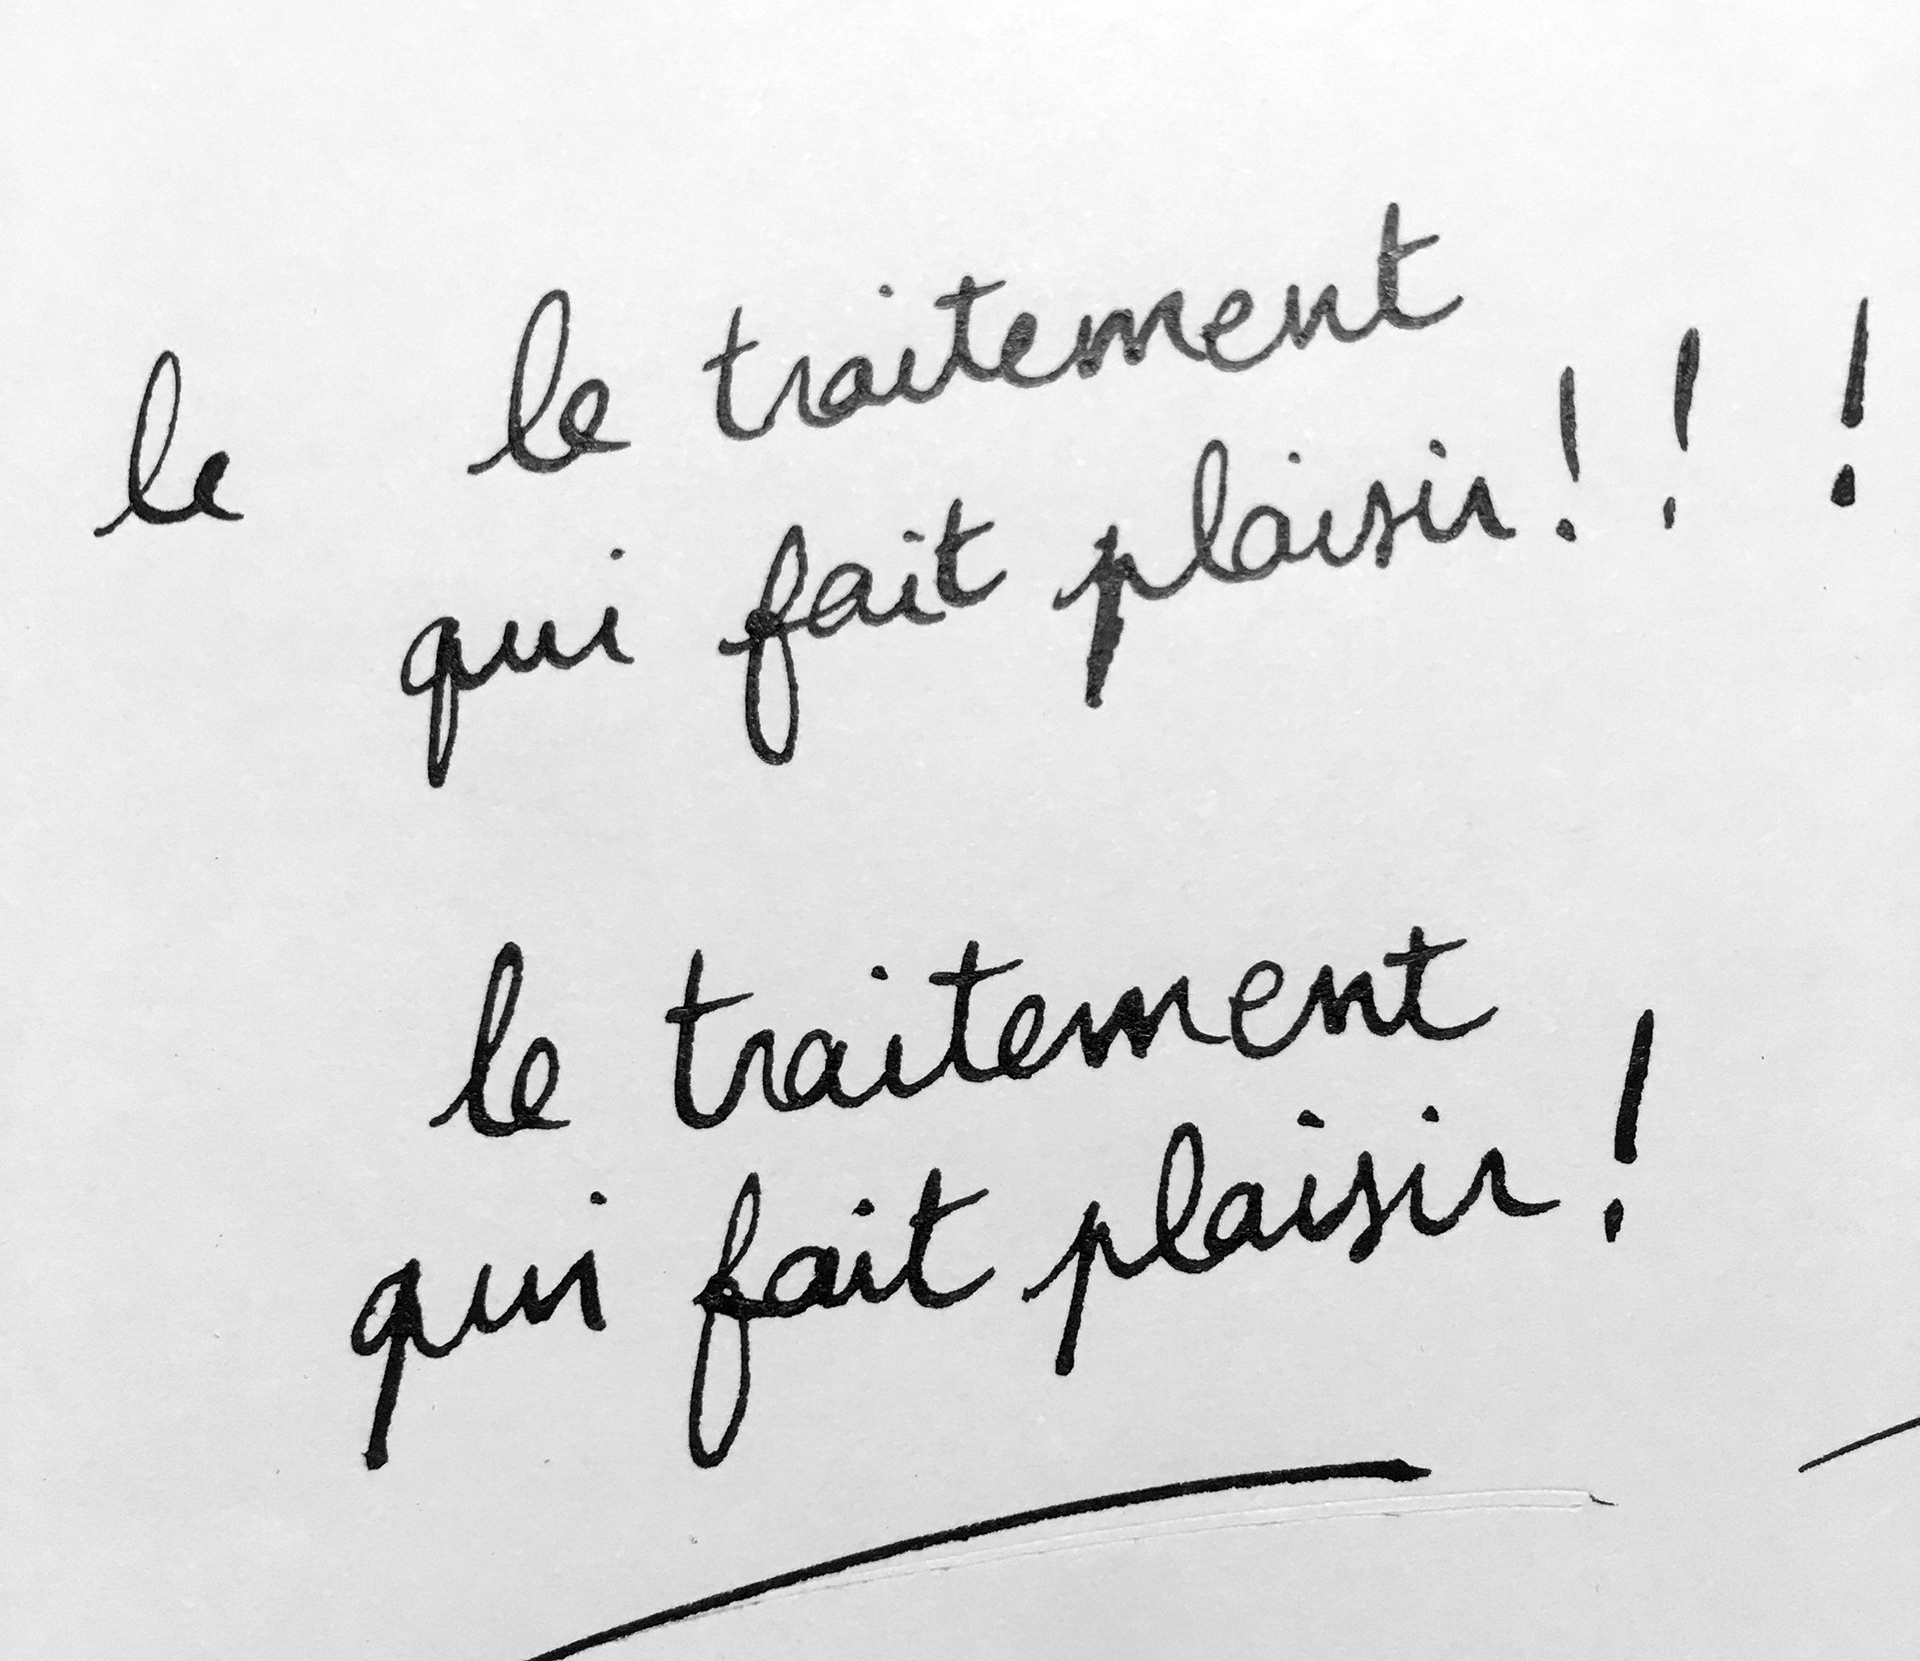 le le traitement
qui fait plaisir!! !
le traitement
qui fait plaisir!